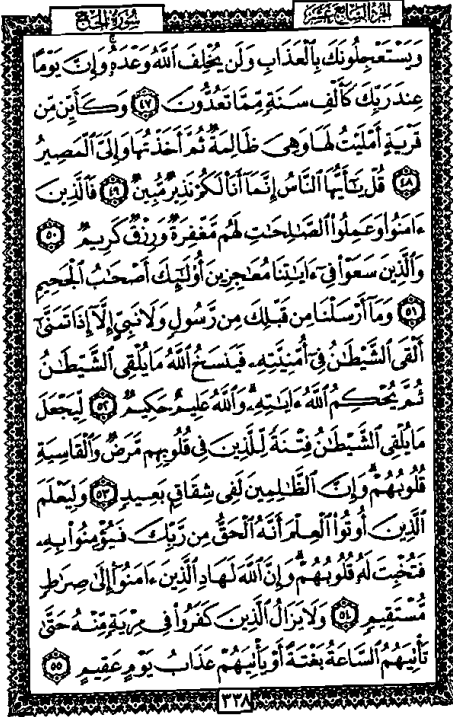 سُورَةُ الحَجِّ
الجزء السابع عشر
وَيَسْتَعْجِلُونَكَ بِالْعَذَابِ وَلَن يُخْلِفَ اللَّهُ وَعْدَهُ وَإِنَّ يَوْمًا
عِندَ رَبِّكَ كَأَلْفِ سَنَةٍ مِّمَّا تَعُدُّونَ ٤٧ وَكَأَيِّن مِّن
قَرْيَةٍ أَمْلَيْتُ لَهَا وَهِيَ ظَالِمَةٌ ثُمَّ أَخَذْتُهَا وَإِلَيَّ الْمَصِيرُ
٤٨ قُلْ يَٰأَيُّهَا النَّاسُ إِنَّمَا أَنَا لَكُمْ نَذِيرٌ مُّبِينٌ ٤٩ فَالَّذِينَ
ءَامَنُوا وَعَمِلُوا الصَّٰلِحَٰتِ لَهُم مَّغْفِرَةٌ وَرِزْقٌ كَرِيمٌ ٥٠
وَالَّذِينَ سَعَوْا فِي ءَايَٰتِنَا مُعَٰجِزِينَ أُولَٰئِكَ أَصْحَٰبُ الْجَحِيمِ
٥١ وَمَا أَرْسَلْنَا مِن قَبْلِكَ مِن رَّسُولٍ وَلَا نَبِيٍّ إِلَّا إِذَا تَمَنَّىٰ
أَلْقَى الشَّيْطَٰنُ فِي أُمْنِيَّتِهِ فَيَنسَخُ اللَّهُ مَا يُلْقِي الشَّيْطَٰنُ
ثُمَّ يُحْكِمُ اللَّهُ ءَايَٰتِهِ وَاللَّهُ عَلِيمٌ حَكِيمٌ ٥٢ لِّيَجْعَلَ
مَا يُلْقِي الشَّيْطَٰنُ فِتْنَةً لِّلَّذِينَ فِي قُلُوبِهِم مَّرَضٌ وَالْقَاسِيَةِ
قُلُوبُهُمْ وَإِنَّ الظَّٰلِمِينَ لَفِي شِقَاقٍ بَعِيدٍ ٥٣ وَلِيَعْلَمَ
الَّذِينَ أُوتُوا الْعِلْمَ أَنَّهُ الْحَقُّ مِن رَّبِّكَ فَيُؤْمِنُوا بِهِ
فَتُخْبِتَ لَهُ قُلُوبُهُمْ وَإِنَّ اللَّهَ لَهَادِ الَّذِينَ ءَامَنُوا إِلَىٰ صِرَٰطٍ
مُّسْتَقِيمٍ ٥٤ وَلَا يَزَالُ الَّذِينَ كَفَرُوا فِي مِرْيَةٍ مِّنْهُ حَتَّىٰ
تَأْتِيَهُمُ السَّاعَةُ بَغْتَةً أَوْ يَأْتِيَهُمْ عَذَابُ يَوْمٍ عَقِيمٍ ٥٥
٣٣٨